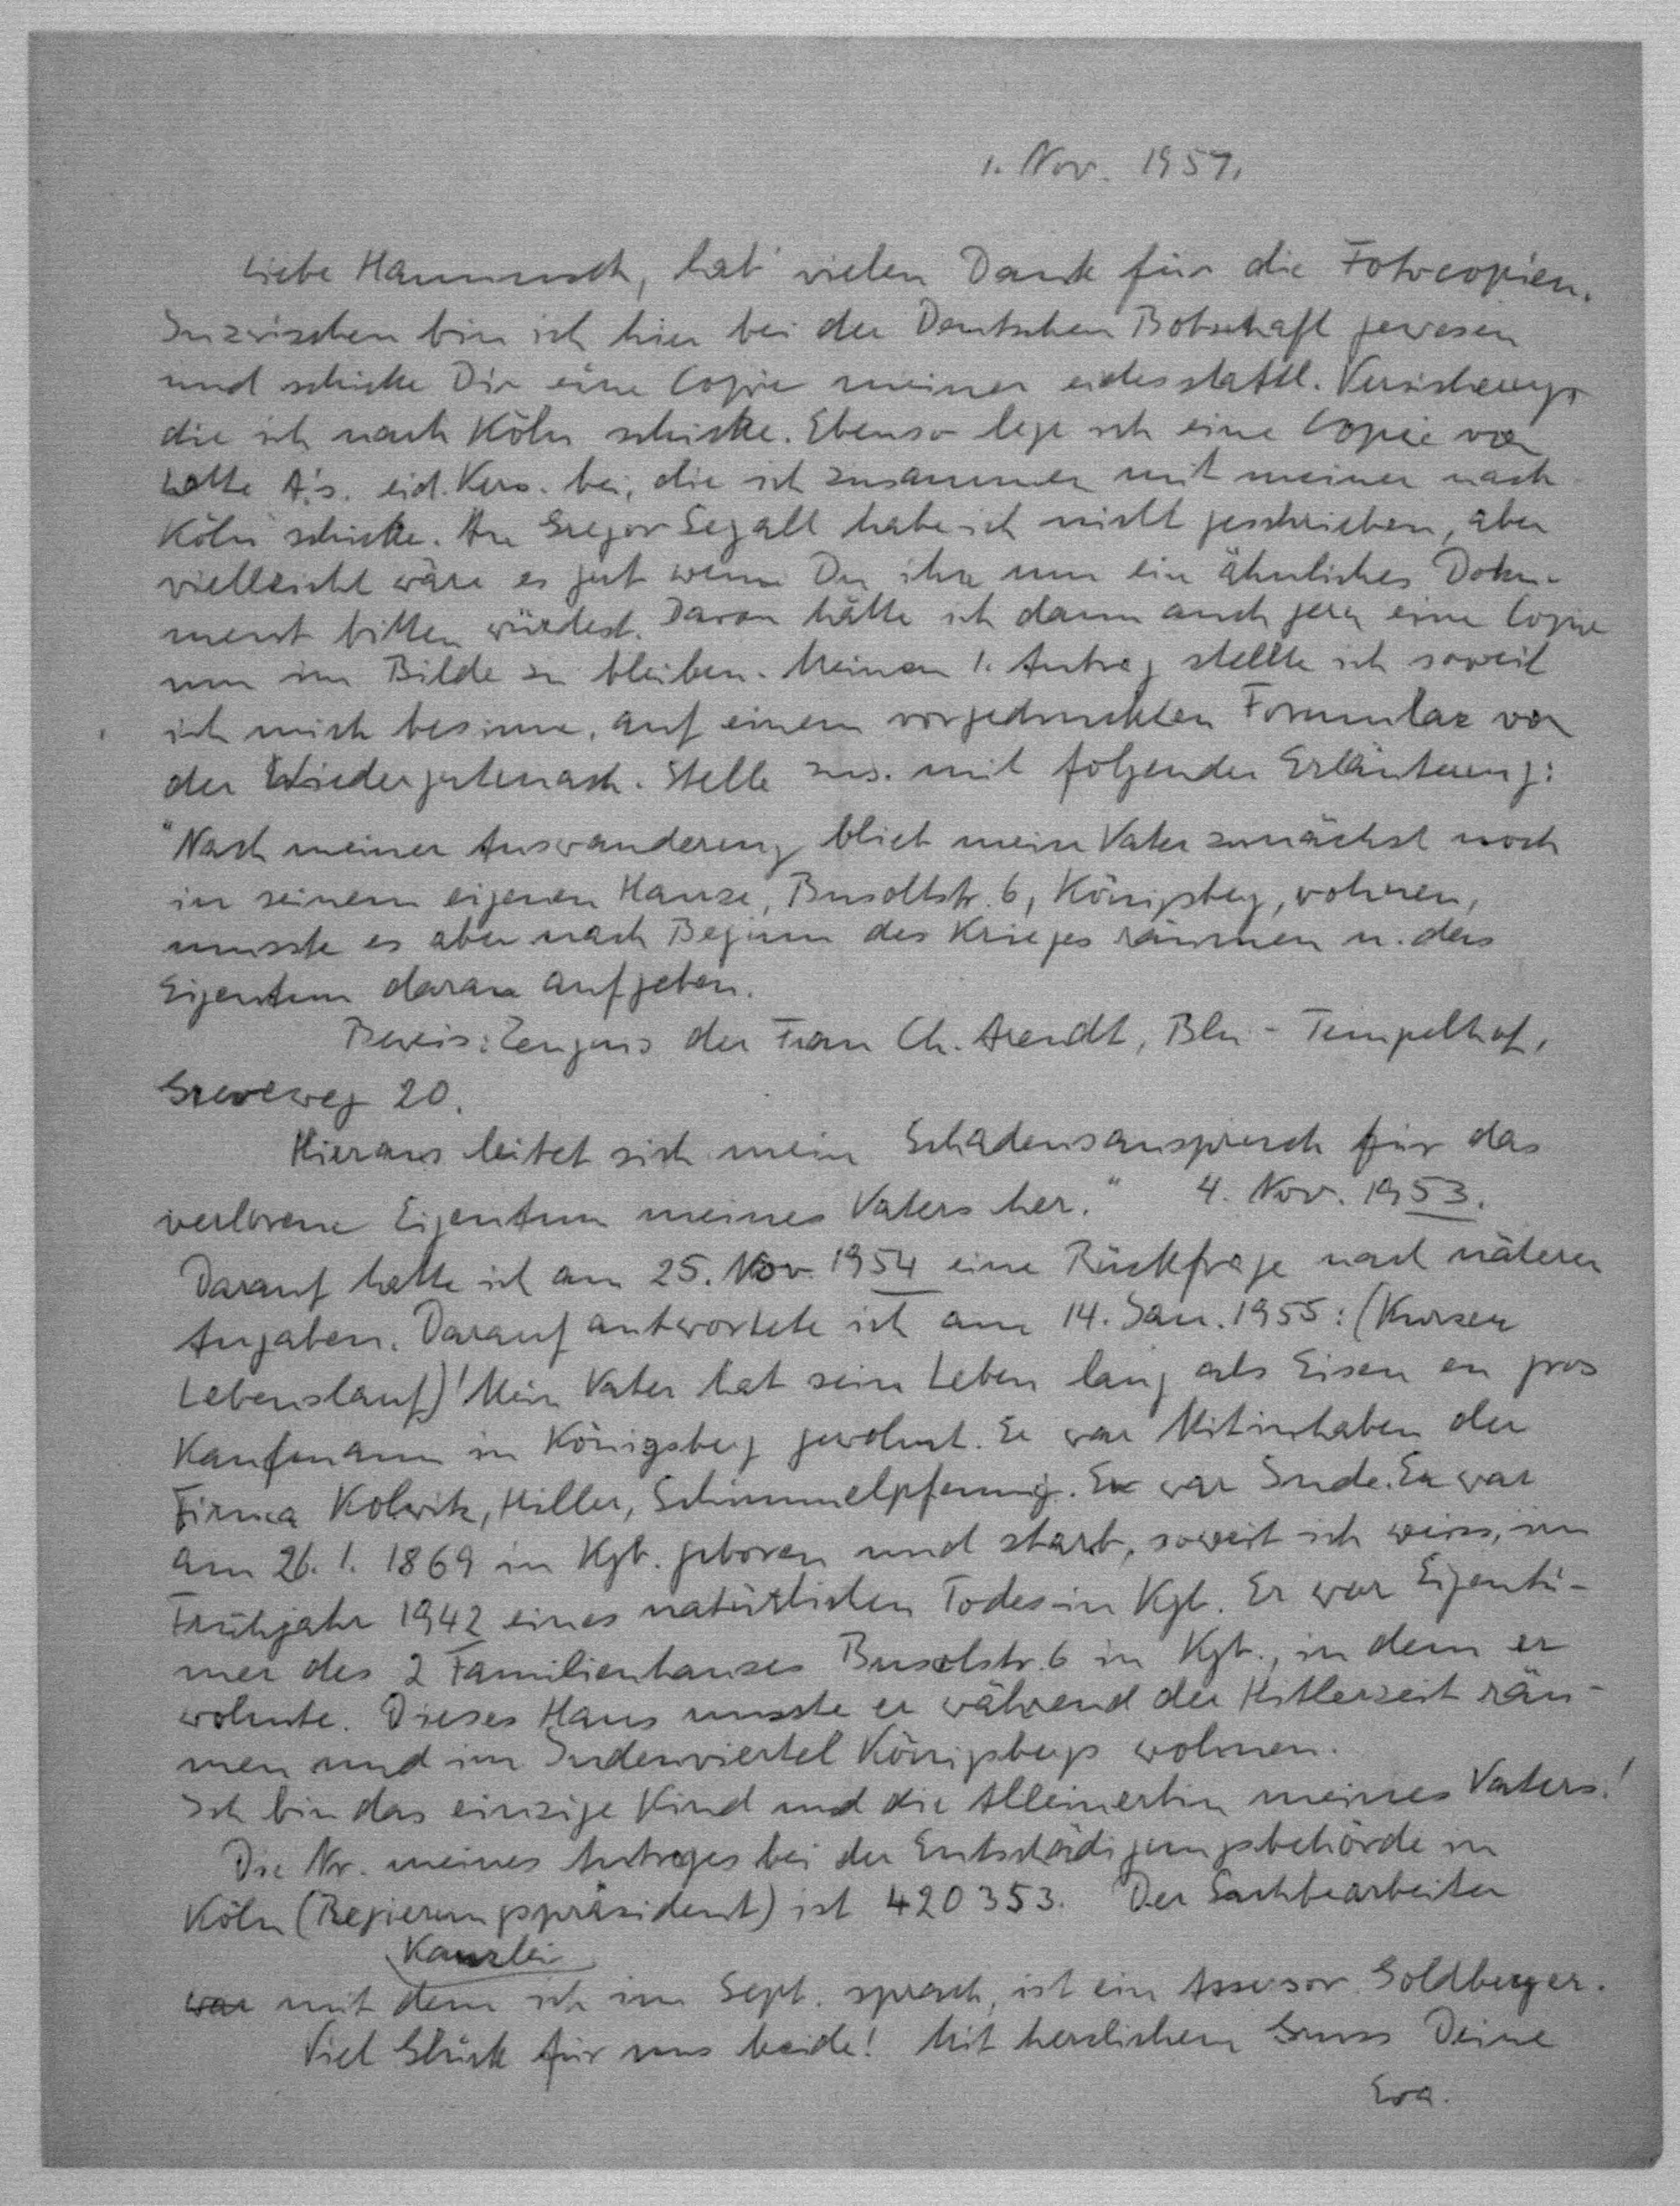 1. Nov. 1957.
Liebe Hannusch, hab' vielen Dank für die Fotocopien.
Inzwischen bin ich hier bei der Deutschen Botschaft gewesen
und schicke Dir eine Copie meiner eidesstattl. Versicherung,
die ich nach Köln schicke. Ebenso lege ich eine Copie von
Lotte A's. eid. Vers. bei, die ich zusammen mit meiner nach
Köln schicke. An Gregor Segall habe ich nicht geschrieben, aber
vielleicht wäre es gut wenn Du ihn um ein ähnliches Doku-
ment bitten würdest. Davon hätte ich dann auch gern eine Copie
um im Bilde zu bleiben. Meinen 1. Antrag stellte ich soweit
ich mich besinne, auf einem vorgedruckten Formular von
der Wiedergutmach. Stelle zus. mit folgender Erläuterung:
"Nach meiner Auswanderung blieb mein Vater zunächst noch
in seinem eigenen Hause, Busoltstr. 6, Königsberg, wohnen,
musste es aber nach Beginn des Krieges räumen u. das
Eigentum daran aufgeben.
Beweis: Zeugnis der Frau Ch. Arendt, Bln - Tempelhof,
Greveweg 20.
Hieraus leitet sich mein Schadensanspruch für das
verlorene Eigentum meines Vaters her." 4. Nov. 1953.
Darauf hatte ich am 25. Nov. 1954 eine Rückfrage nach näheren
Angaben. Darauf antwortete ich am 14. Jan. 1955: (Kurzen
Lebenslauf) 'Mein Vater hat sein Leben lang als Eisen en gros
Kaufmann in Königsberg gewohnt. Er war Mitinhaber der
Firma Kolwitz, Hiller, Schimmelpfennig. Er war Jude. Er war
am 26. 1. 1869 in Kgb. geboren und starb, soweit ich weiss, im
Frühjahr 1942 eines natürlichen Todes in Kgb. Er war Eigentü-
mer des 2 Familienhauses Busoltstr. 6 in Kgb., in dem er
wohnte. Dieses Haus musste er während der Hitlerzeit räu-
men und im Judenviertel Königsbergs wohnen.
Ich bin das einzige Kind und die Alleinerbin meines Vaters.'
Die Nr. meines Antrages bei der Entschädigungsbehörde in
Köln (Regierungspräsident) ist 420353. Der Sachbearbeiter
Kanzlei
war mit dem ich im Sept. sprach, ist ein Assessor Goldberger.
Viel Glück für uns beide! Mit herzlichem Gruss Deine
Eva.